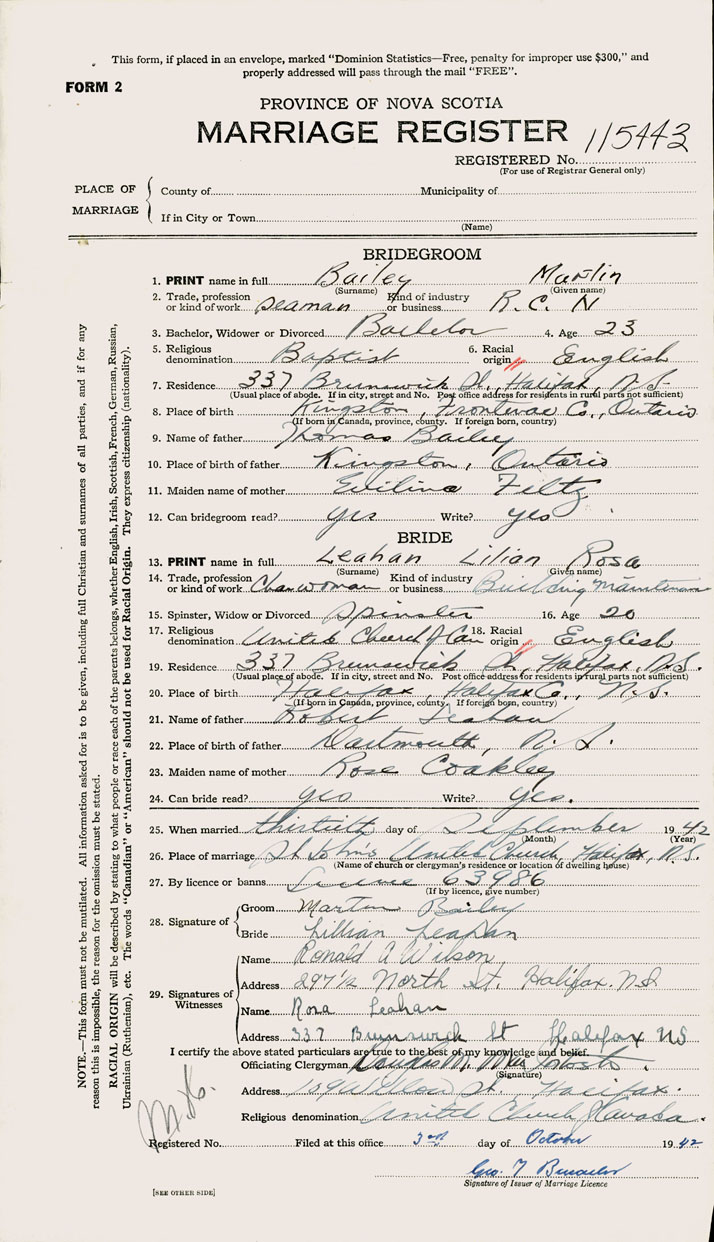 This form, if placed in an envelope, marked "Dominion Statistics—Free, penalty for improper use $300," and
properly addressed will pass through the mail "FREE".
FORM 2
PROVINCE OF NOVA SCOTIA
MARRIAGE REGISTER 115443
REGISTERED No.
(For use of Registrar General only)
PLACE OF MARRIAGE
County of Municipality of
If in City or Town
(Name)
BRIDEGROOM
1. PRINT name in full Bailey Martin
(Surname) (Given name)
2. Trade, profession or kind of work Seaman Kind of industry or business R.C.N
3. Bachelor, Widower or Divorced Bachelor 4. Age 23
5. Religious denomination Baptist 6. Racial origin English
7. Residence 337 Brunswick St., Halifax, N.S.
(Usual place of abode. If in city, street and No. Post office address for residents in rural parts not sufficient)
8. Place of birth Kingston, Frontenac Co., Ontario
(If born in Canada, province, county. If foreign born, country)
9. Name of father Thomas Bailey
10. Place of birth of father Kingston, Ontario
11. Maiden name of mother Evilina Filtz
12. Can bridegroom read? yes Write? yes
BRIDE
13. PRINT name in full Leahan Lilian Rosa
(Surname) (Given name)
14. Trade, profession or kind of work Charwoman Kind of industry or business Building
15. Spinster, Widow or Divorced Spinster 16. Age 20
17. Religious denomination United Church of Can 18. Racial origin English
19. Residence 337 Brunswick St., Halifax, N.S.
(Usual place of abode. If in city, street and No. Post office address for residents in rural parts not sufficient)
20. Place of birth Halifax, Halifax Co., N.S.
(If born in Canada, province, county. If foreign born, country)
21. Name of father Robert Leahan
22. Place of birth of father Dartmouth, N.S.
23. Maiden name of mother Rose Coakley
24. Can bride read? yes Write? yes.
25. When married thirtieth day of September 1942
(Month) (Year)
26. Place of marriage St. John's United Church, Halifax, N.S.
(Name of church or clergyman's residence or location of dwelling house)
27. By licence or banns License 63986
(If by licence, give number)
28. Signature of
Groom Martin Bailey
Bride Lillian Leahan
29. Signatures of Witnesses
Name Ronald A Wilson,
Address 297½ North St. Halifax. N.S
Name Rosa Leahan
Address 337 Brunswick St Halifax NS
I certify the above stated particulars are true to the best of my knowledge and belief.
Officiating Clergyman
(Signature)
Address 189 Willow St. Halifax.
Religious denomination United Church of Canada.
Registered No. Filed at this office 3rd day of October 1942
Geo. T
Signature of Issuer of Marriage Licence
[SEE OTHER SIDE]
NOTE.—This form must not be mutilated. All information asked for is to be given, including full Christian and surnames of all parties, and if for any
reason this is impossible, the reason for the omission must be stated.
RACIAL ORIGIN will be described by stating to what people or race each of the parents belongs, whether English, Irish, Scottish, French, German, Russian,
Ukrainian (Ruthenian), etc. The words "Canadian" or "American" should not be used for Racial Origin. They express citizenship (nationality).